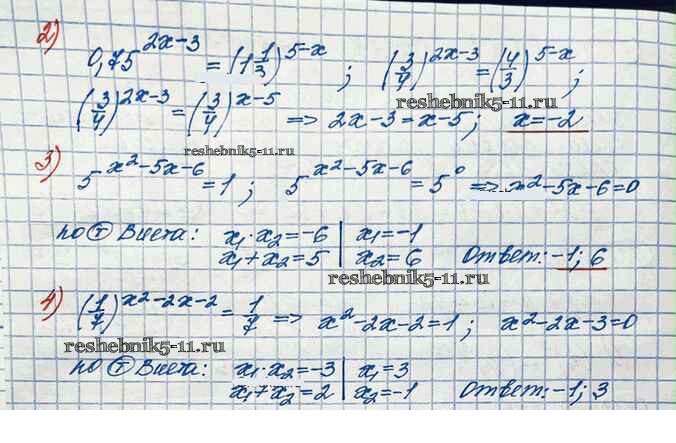 2) 0,75^(2x-3) = (1 1/3)^(5-x) ; (3/4)^(2x-3) = (4/3)^(5-x) ;
reshebnik5-11.ru
(3/4)^(2x-3) = (3/4)^(x-5) => 2x-3=x-5; x=-2
reshebnik5-11.ru
3) 5^(x²-5x-6) = 1 ; 5^(x²-5x-6) = 5^0 => x²-5x-6=0
по Т Виета: x₁·x₂=-6 | x₁=-1
x₁+x₂=5 | x₂=6 Ответ: -1; 6
reshebnik5-11.ru
4) (1/7)^(x²-2x-2) = 1/7 => x²-2x-2=1; x²-2x-3=0
reshebnik5-11.ru
по Т Виета: x₁·x₂=-3 | x₁=3
x₁+x₂=2 | x₂=-1 Ответ: -1; 3